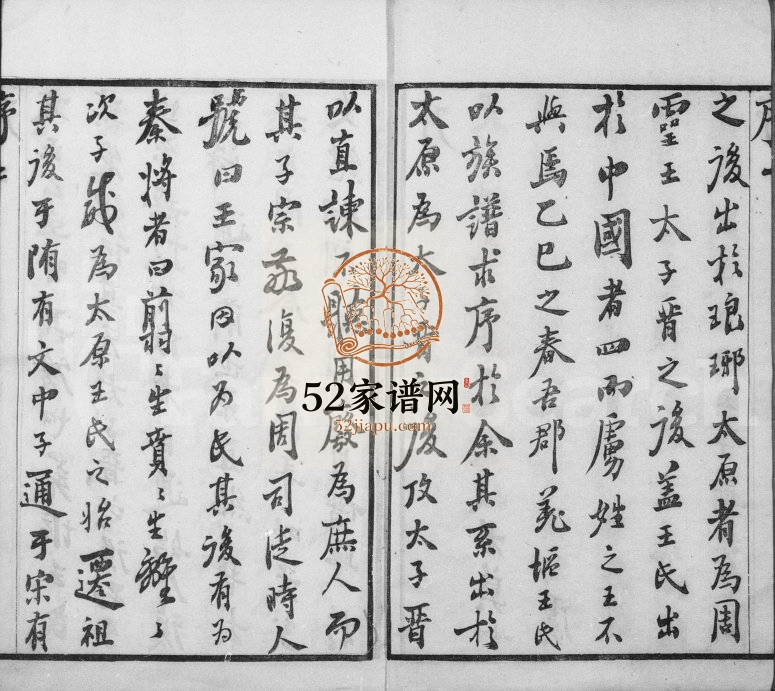 之後出於琅琊太原者為周
靈王太子晉之後蓋王氏出
於中國者四而虜姓之王不
與焉乙巳之春吾郡 王氏
以族譜求序於余其系出於
太原為太子晉之後攷太子晉
以直諫 用廢為庶人而
其子宗敬復為周司徒時人
號曰王家因以為氏其後有為
秦將者曰翦翦生賁賁生離離
次子威為太原王氏之始遷祖
其後于隋有文中子通于宋有
序
52家谱网
52jiapu.com